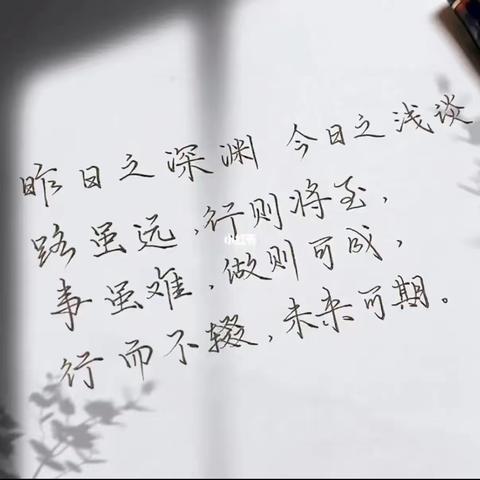 昨日之深渊 今日之浅谈
路虽远,行则将至,
事虽难,做则可成,
行而不辍,未来可期。
小红书